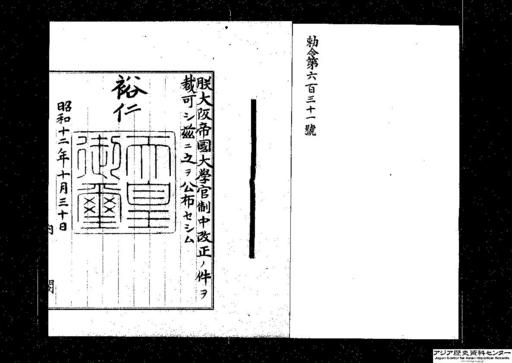 勅令第六百三十一號
朕大阪帝國大學官制中改正ノ件ヲ
裁可シ茲ニ之ヲ公布セシム
裕仁
天皇
御璽
昭和十二年十月三十日
内閣
アジア歴史資料センター
Japan Center for Asian Historical Records